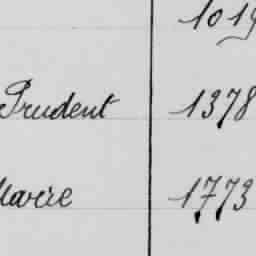 1019
Prudent 1378
Marie 1773